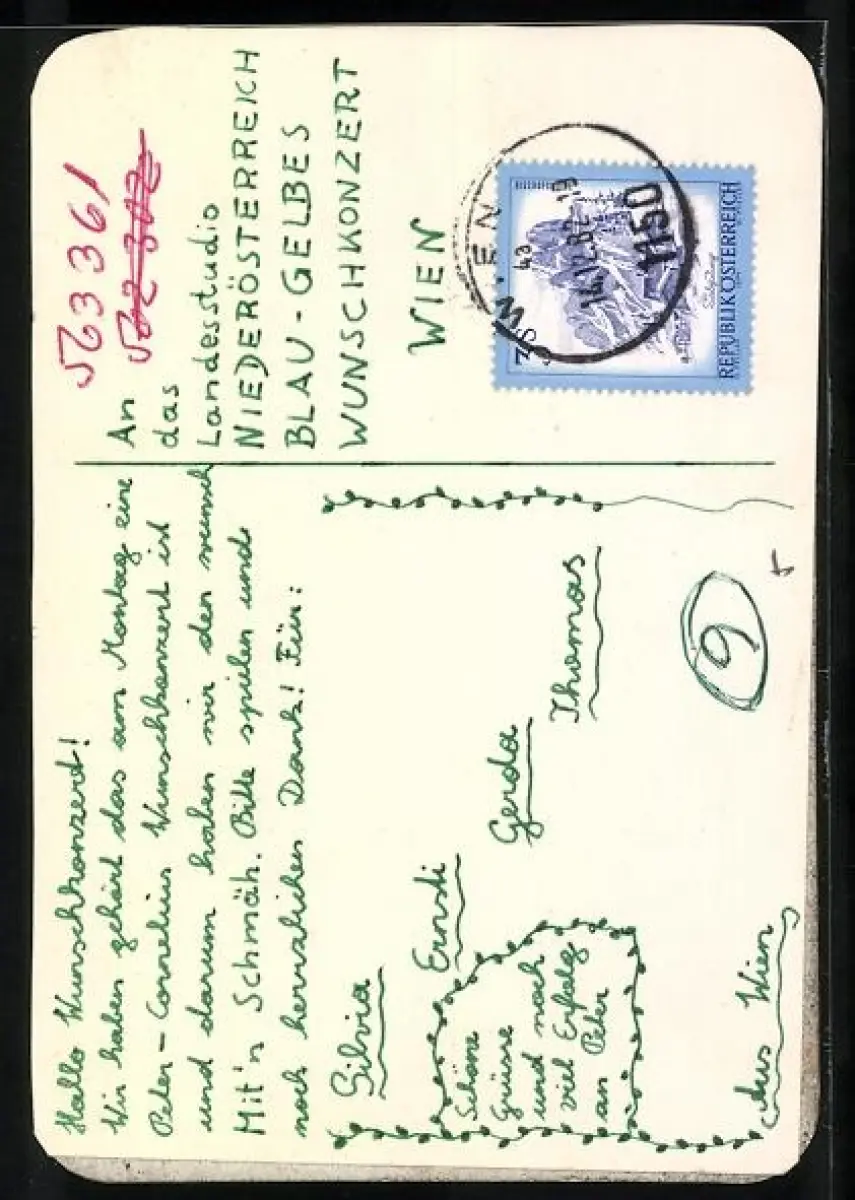 Hallo Wunschkonzert!
Wir haben gehört das am Montag eine
Peter-Cornelius Wunschkonzert ist
und darum haben wir den wunsch
Mit'n Schmäh. Bitte spielen und
noch herzlichen Dank! Für:
Silvia
Ernsti
Gerda
Thomas
Schöne
Grüsse
und noch
viel Erfolg
an Peter
Aus Wien
9
563361
An
das
Landesstudio
NIEDERÖSTERREICH
BLAU-GELBES
WUNSCHKONZERT
WIEN
WIEN
43
14.12.82 19
1150
3 S
REPUBLIK ÖSTERREICH